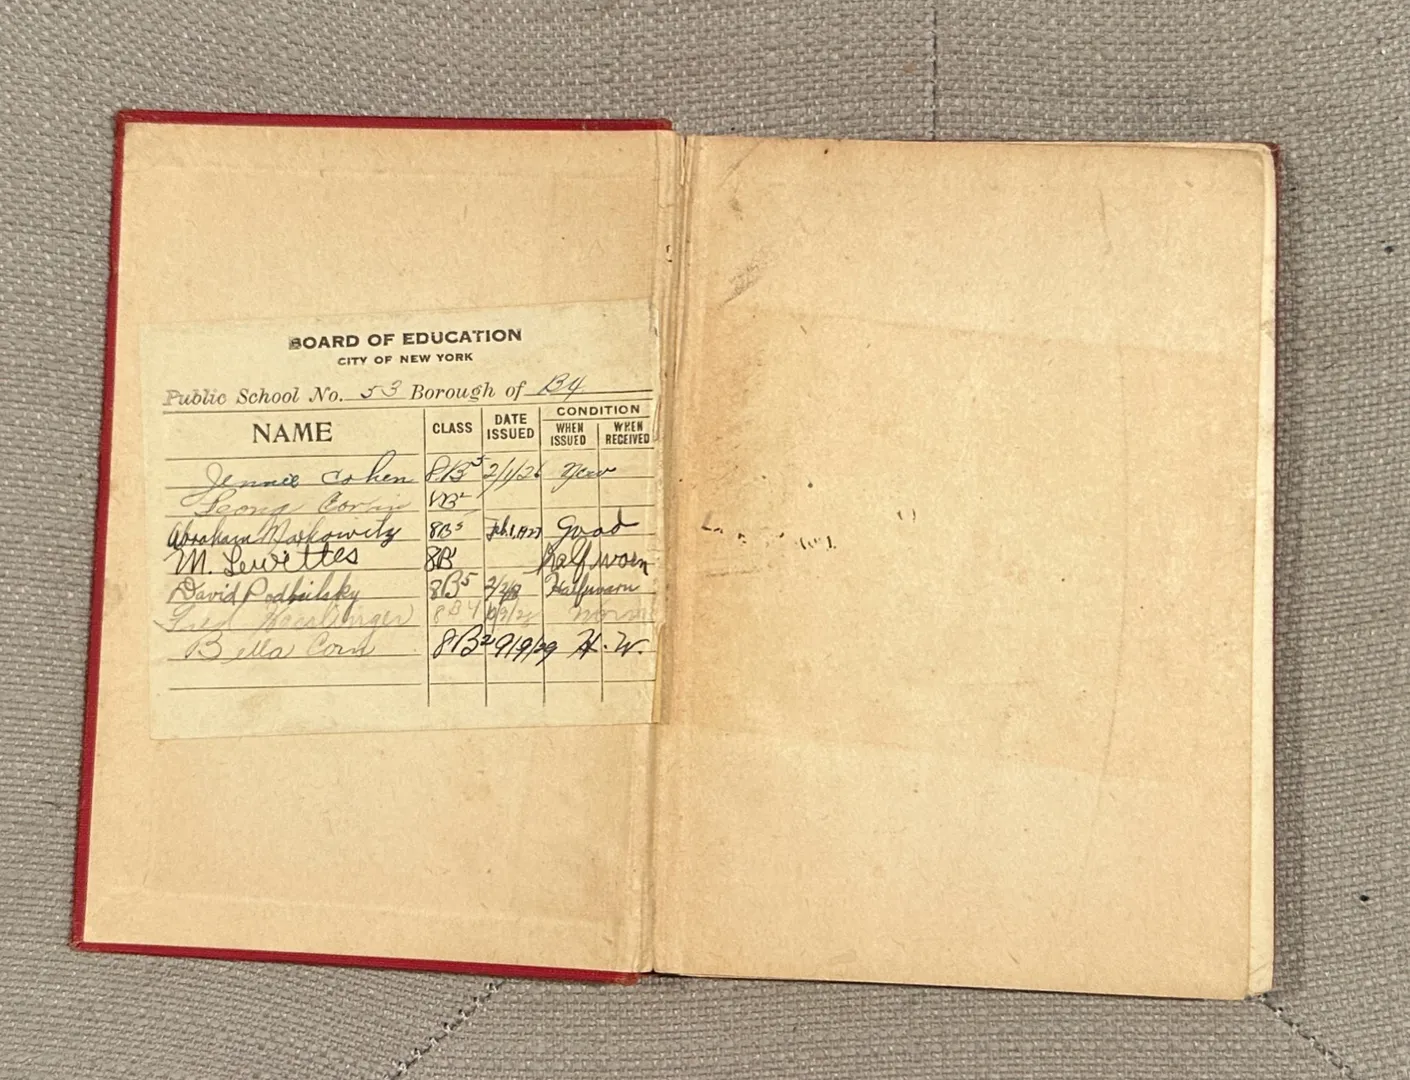 BOARD OF EDUCATION
CITY OF NEW YORK
Public School No. 53 Borough of
NAME CLASS DATE ISSUED CONDITION WHEN ISSUED WHEN RECEIVED
Jennie Cohen 8B5 2/1/26 New
Leona
Abraham Markowitz 8B5 Feb. 1, 1927 Good
M. Lewittes 8B1 Half worn
David Podbilsky 8B5 Halfworn
Fred 8B4
Bella Corn 8B2 9/9/29 H. W.